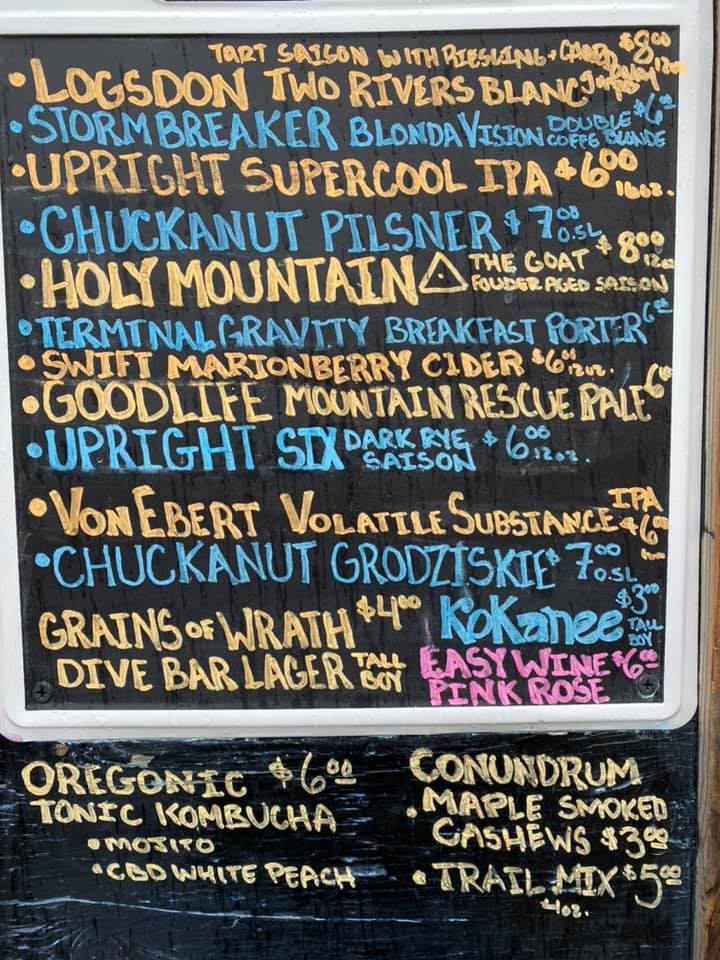 TART SAISON WITH RIESLING + CHARD $8.00
• LOGSDON TWO RIVERS BLANC JUICE 12oz
• STORMBREAKER BLONDAVISION DOUBLE COFFE BLONDE $6.00
• UPRIGHT SUPERCOOL IPA $6.00 16oz.
• CHUCKANUT PILSNER $7.00 0.5L
• HOLY MOUNTAIN THE GOAT $8.00 12oz
FOUDER AGED SAISON
• TERMINAL GRAVITY BREAKFAST PORTER 6.00
• SWIFT MARIONBERRY CIDER $6.00 12oz.
• GOODLIFE MOUNTAIN RESCUE PALE 6.00
• UPRIGHT SIX DARK RYE SAISON $6.00 12oz.
• VON EBERT VOLATILE SUBSTANCE IPA $6.00
• CHUCKANUT GRODZISKIE $7.00 0.5L
GRAINS OF WRATH $4.00
DIVE BAR LAGER TALL BOY
KOKanee $3.00 TALL BOY
EASY WINE $6.00
PINK ROSE
OREGONIC $6.00
TONIC KOMBUCHA
• MOJITO
• CBD WHITE PEACH
CONUNDRUM
• MAPLE SMOKED
CASHEWS $3.00
• TRAIL MIX $5.00
4oz.